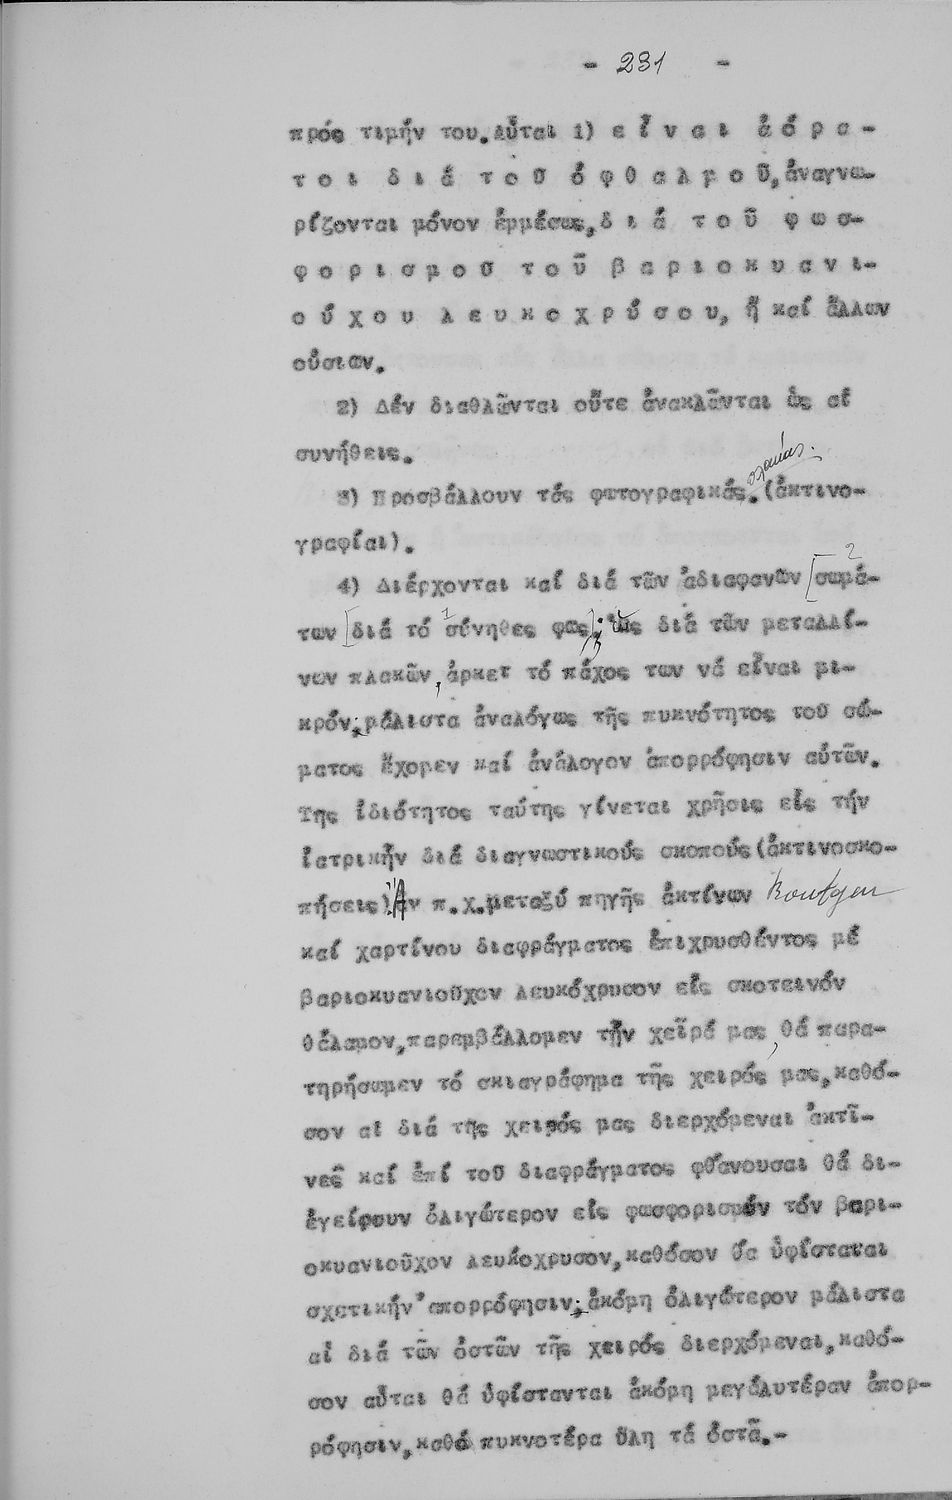 - 231 -
πρός τιμήν του. Αὗται 1) ε ἶ ν α ι ἀ ό ρ α -
τ ο ι δ ι ά τ ο ῦ ὀ φ θ α λ μ ο ῦ, ἀναγνω-
ρίζονται μόνον ἐμμέσως, δ ι ά τ ο ῦ φ ω σ-
φ ο ρ ι σ μ ο ῦ τ ο ῦ β α ρ ι ο κ υ α ν ι-
ο ύ χ ο υ λ ε υ κ ο χ ρ ύ σ ο υ, ἤ καί ἄλλων
οὐσιων.
2) Δέν διαθλῶνται οὔτε ἀνακλῶνται ὡς αἱ
συνήθεις.
πλακας.
3) Προσβάλλουν τάς φωτογραφικάς. (ἀκτινο-
γραφίαι).
4) Διέρχονται καί διά τῶν ἀδιαφανῶν [σωμά- 2
των [διά τό 1 σύνηθες φως]; ὡς διά τῶν μεταλλί-
νων πλακῶν, ἀρκεῖ τό πάχος των νά εἶναι μι-
κρόν; μάλιστα ἀναλόγως τῆς πυκνότητος τοῦ σώ-
ματος ἔχομεν καί ἀνάλογον ἀπορρόφησιν αὐτῶν.
Της ἰδιότητος ταύτης γίνεται χρῆσις εἰς τήν
ἰατρικήν διά διαγνωστικούς σκοπούς (ἀκτινοσκο-
πήσεις) Ἄν π.χ. μεταξύ πηγῆς ἀκτίνων Rontgen
καί χαρτίνου διαφράγματος ἐπιχρυσθέντος μέ
βαριοκυανιοῦχον λευκόχρυσον εἰς σκοτεινόν
θάλαμον, παρεμβάλλομεν τήν χεῖρά μας, θά παρα-
τηρήσωμεν τό σκιαγράφημα τῆς χειρός μας, καθό-
σον αἱ διά τῆς χειρός μας διερχόμεναι ἀκτῖ-
νες καί ἐπί τοῦ διαφράγματος φθάνουσαι θά δι-
εγείρουν ὀλιγώτερον εἰς φωσφορισμόν τόν βαρι-
οκυανιοῦχον λευκόχρυσον, καθόσον θα ὑφίστανται
σχετικήν ἀπορρόφησιν; ἀκόμη ὀλιγώτερον μάλιστα
αἱ διά τῶν ὀστῶν τῆς χειρός διερχόμεναι, καθό-
σον αὗται θά ὑφίστανται ἀκόμη μεγαλυτέραν ἀπορ-
ρόφησιν, καθό πυκνοτέρα ὕλη τά ὀστᾶ.-